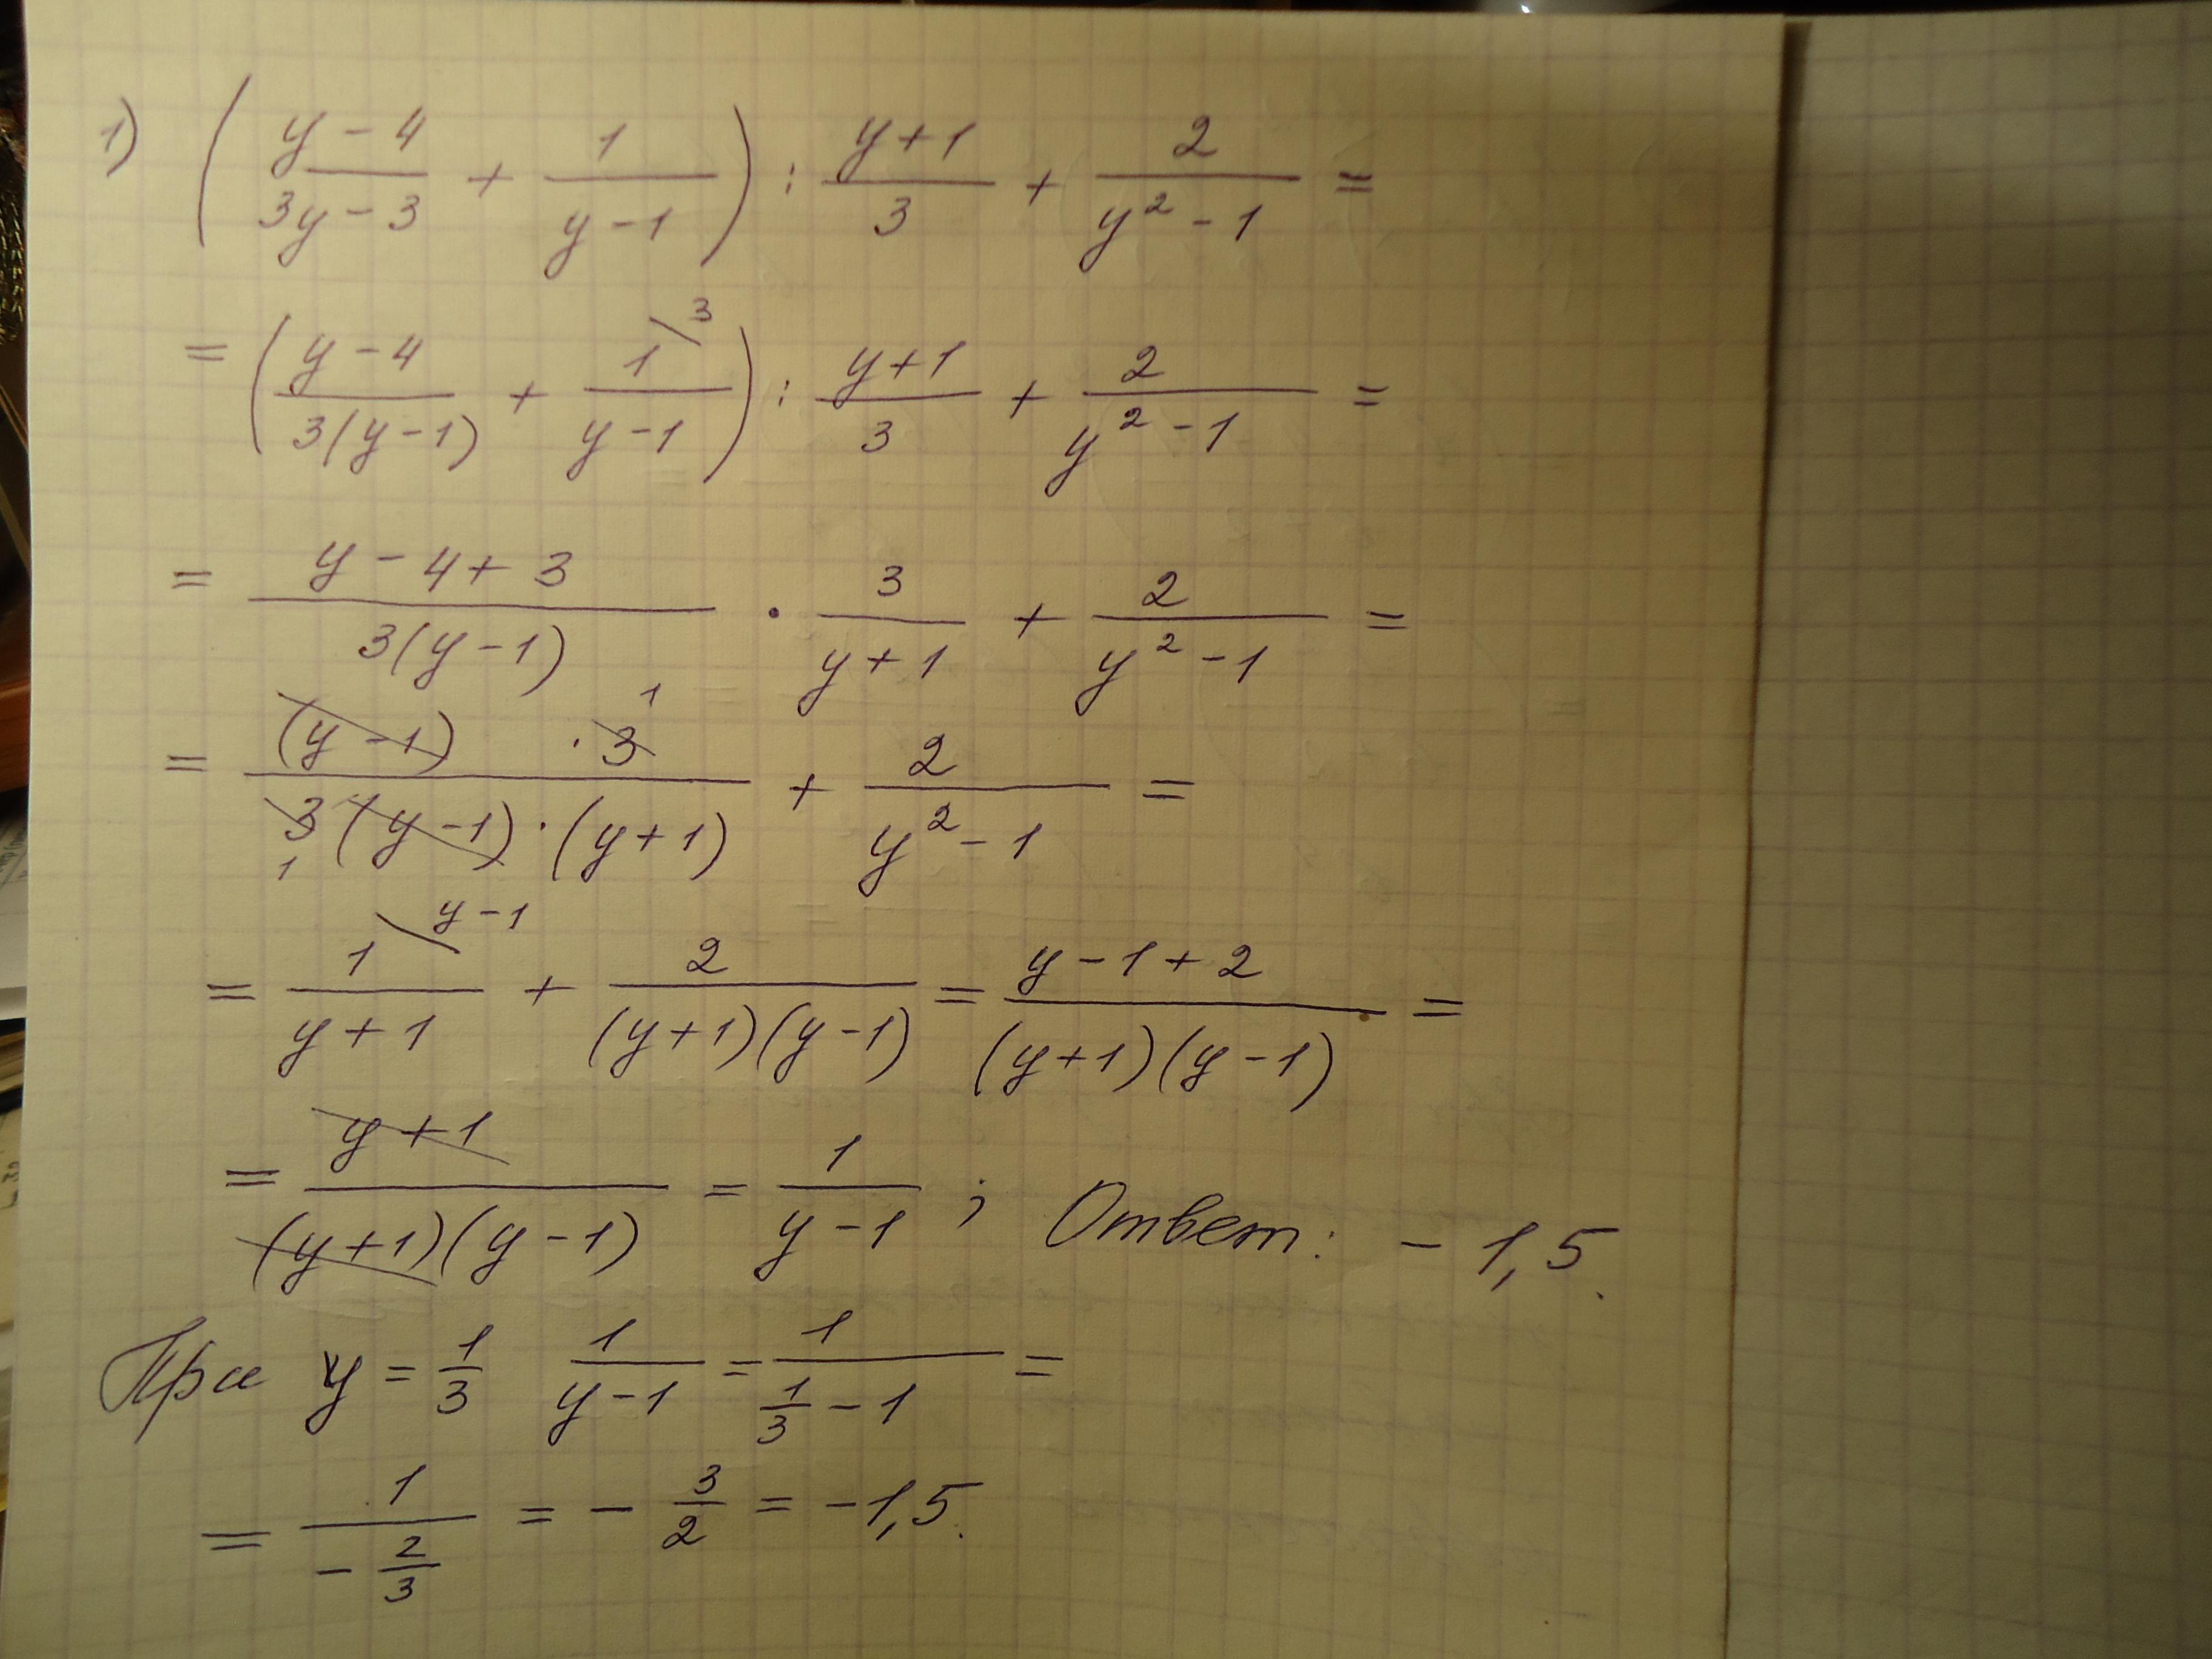 1) ( (y-4)/(3y-3) + 1/(y-1) ) : (y+1)/3 + 2/(y²-1) =
= ( (y-4)/(3(y-1)) + 1\3/(y-1) ) : (y+1)/3 + 2/(y²-1) =
= (y-4+3)/(3(y-1)) · 3/(y+1) + 2/(y²-1) =
= ((y-1) · 3 1)/(3 1 (y-1) · (y+1)) + 2/(y²-1) =
= 1\y-1/(y+1) + 2/((y+1)(y-1)) = (y-1+2)/((y+1)(y-1)) =
= (y+1)/((y+1)(y-1)) = 1/(y-1) ; Ответ: -1,5.
При y = 1/3 1/(y-1) = 1/(1/3 - 1) =
= 1/(-2/3) = -3/2 = -1,5.